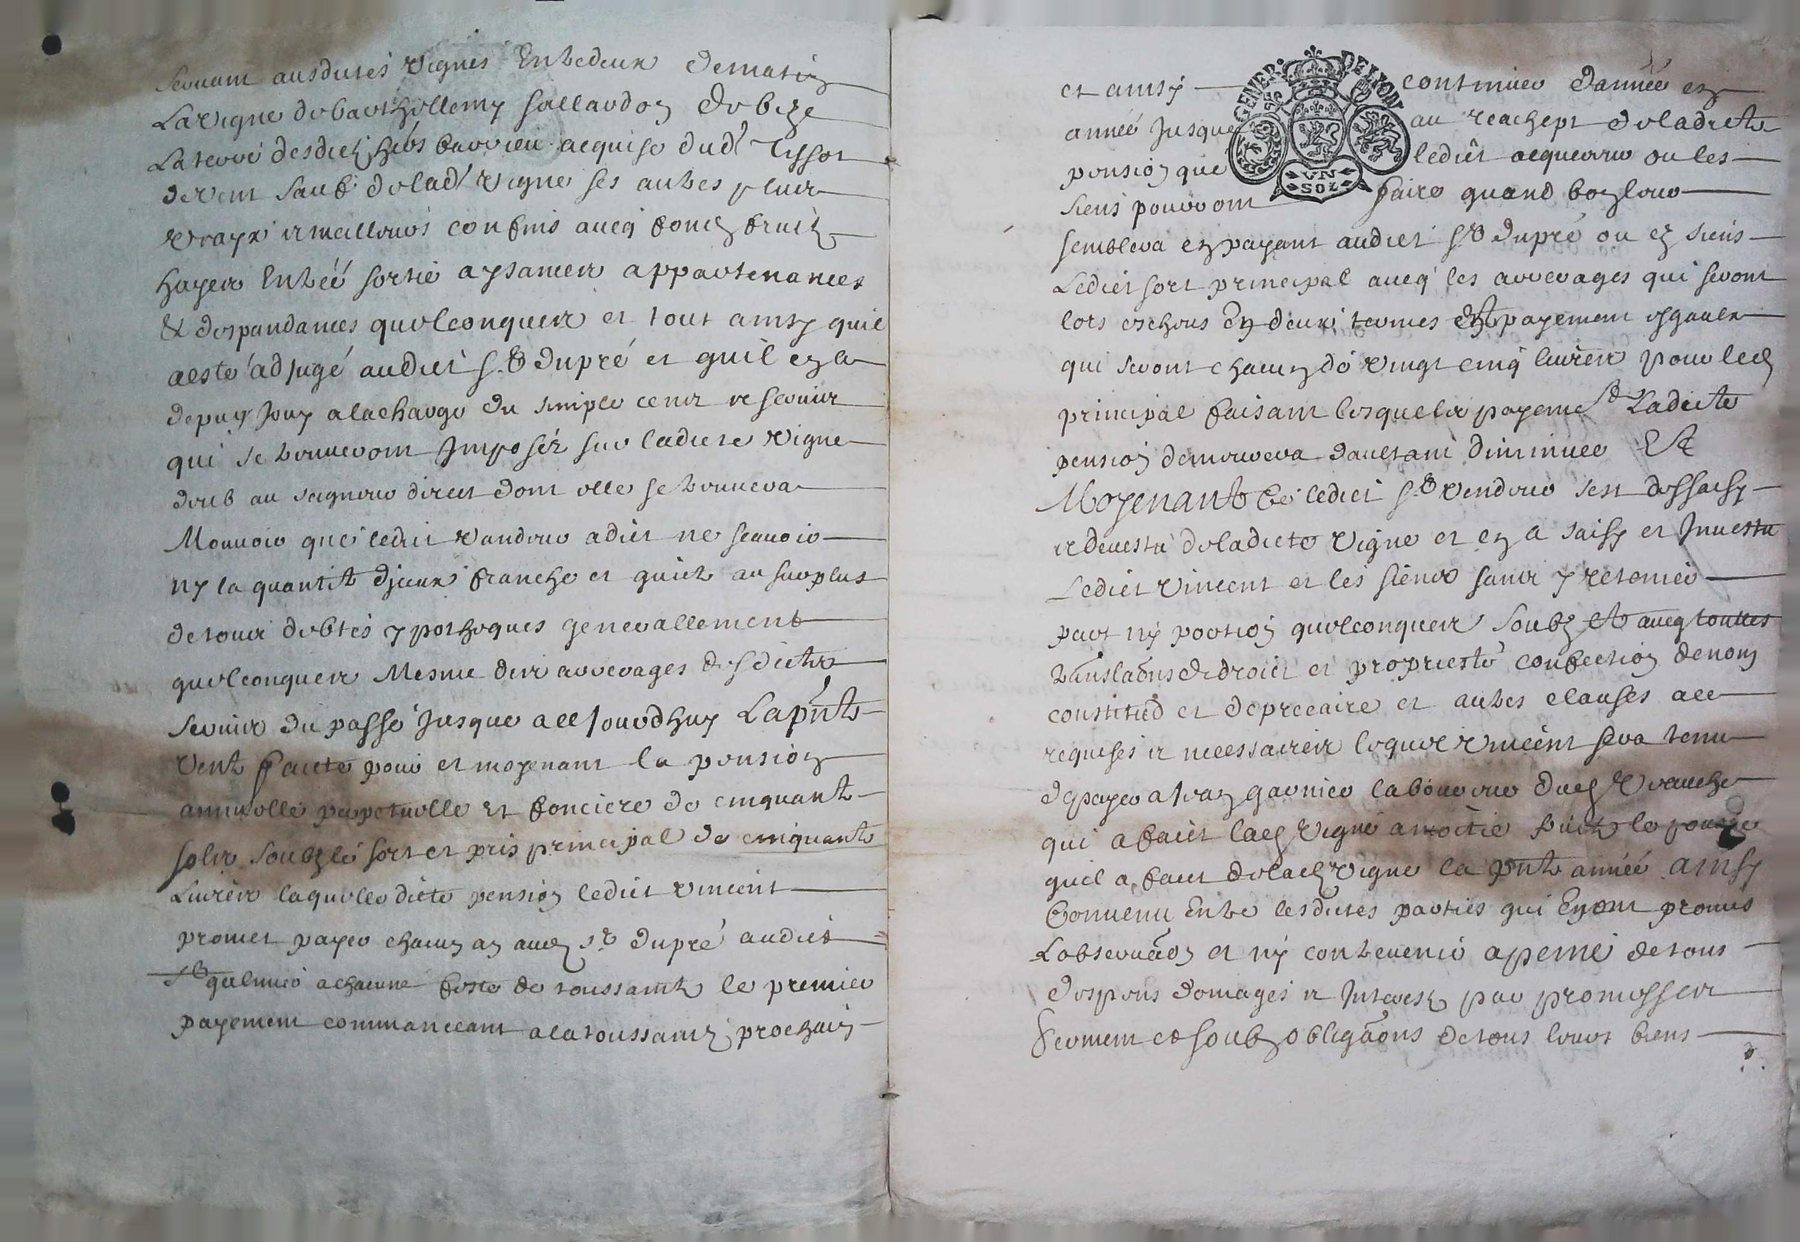 servant ausdictes vignes Entredeux dematin
La vigne de barthollemy sallaudon de bize
La terre desdictz hers barrieu acquise dud Tissot
de vent sauf de lad vigne ses autres plus
vrayx et meilleurs confins avecq fondz fruictz
hayes Entréé sortie aysances appartenances
& despandances quelconques et tout ainsy quil
a esté adjugé audict Sr dupré et quil en a
depuis jouy a la charge du simple cens et servis
qui se trouveront Imposéz sur ladicte vigne
deub au seigneur direct dont elle se trouvera
Mouvoir que ledict vandeur a dict ne scavoir
ny la quantité d'jceux franche et quicte au surplus
de tous debtes ypotheques generallement
quelconques Mesme des arrerages desdictz
servis du passé jusque a ce jourdhuy La pnte
vente faicte pour et moyenant la pension
annuelle perpetuelle et fonciere de cinquante
solz soubz le sort et pris principal de cinquante
Livres laquelle dicte pension ledict vincent
promet payer chacun an aud sr dupré audict
a chacune feste de toussaintz le premier
payement commanceant a la toussaintz prochain
et ainsy continuer d'année en
année jusque au reachept de ladicte
pension que ledict acquereur ou les
siens pourront faire quand bon leur
semblera en payant audict Sr dupré ou es siens
Ledict sort principal avecq les arrerages qui seront
lors escheus En deux termes et payement esgaulx
qui seront chacun de vingt cinq livres pour led
principal faisant lesquelz payemens Ladicte
pension demourera d'aultant diminuée Et
Moyenant ce ledict Sr vendeur s'est dessaisy
et devestu de ladicte vigne et en a saisy et Jnvestu
Ledict vincent et les siens sans y retenir
part ny portion quelconques soubz et avecq touttes
translaons de droict et proprieté confection de nom
constitué et de precaire et autres clauses ace
requises et necessaires lequel vincent sera tenu
de payer a Jean garnier laboureur dud vranche
qui a faict lad vigne a moitié fruictz le
quil a faict de lad vigne la pnte année ainsy
Convenu Entre lesdictes parties qui En ont promis
L'observaon et ny contrevenir a peine de tous
despens domages et Interestz par promesses
serment et soubz obligaons de tous leurs biens
GENER. DE LYON
VN
SOL